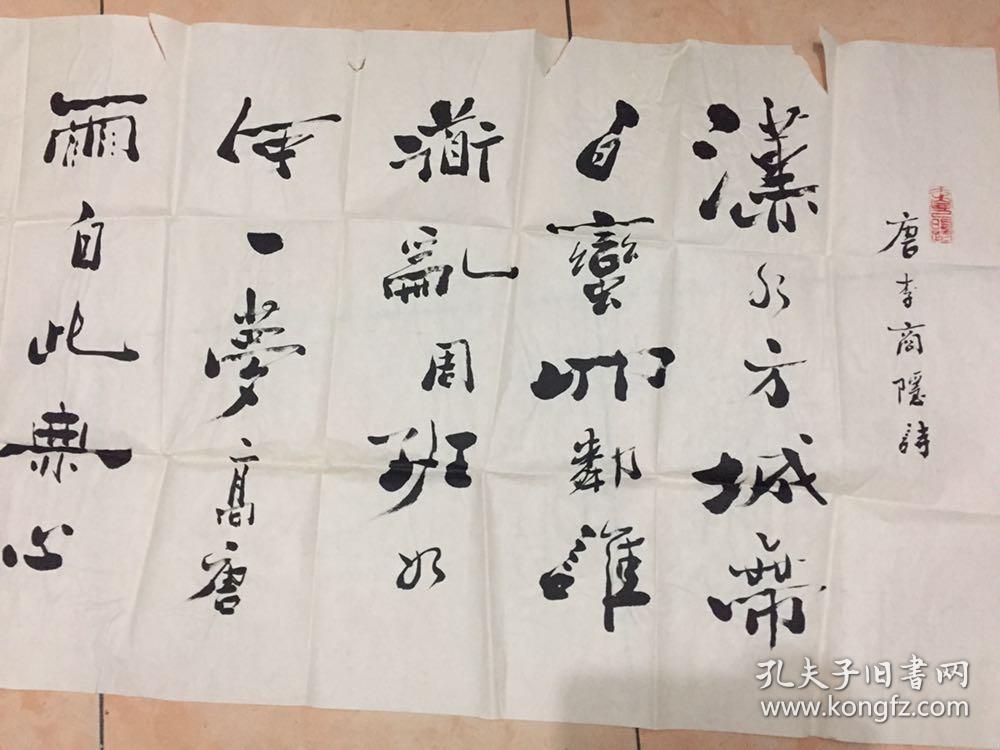 唐李商隱詩
漢水方城帶
百蠻四鄰誰
道亂周班如
何一夢高唐
雨自此無心
孔夫子旧书网
www.kongfz.com